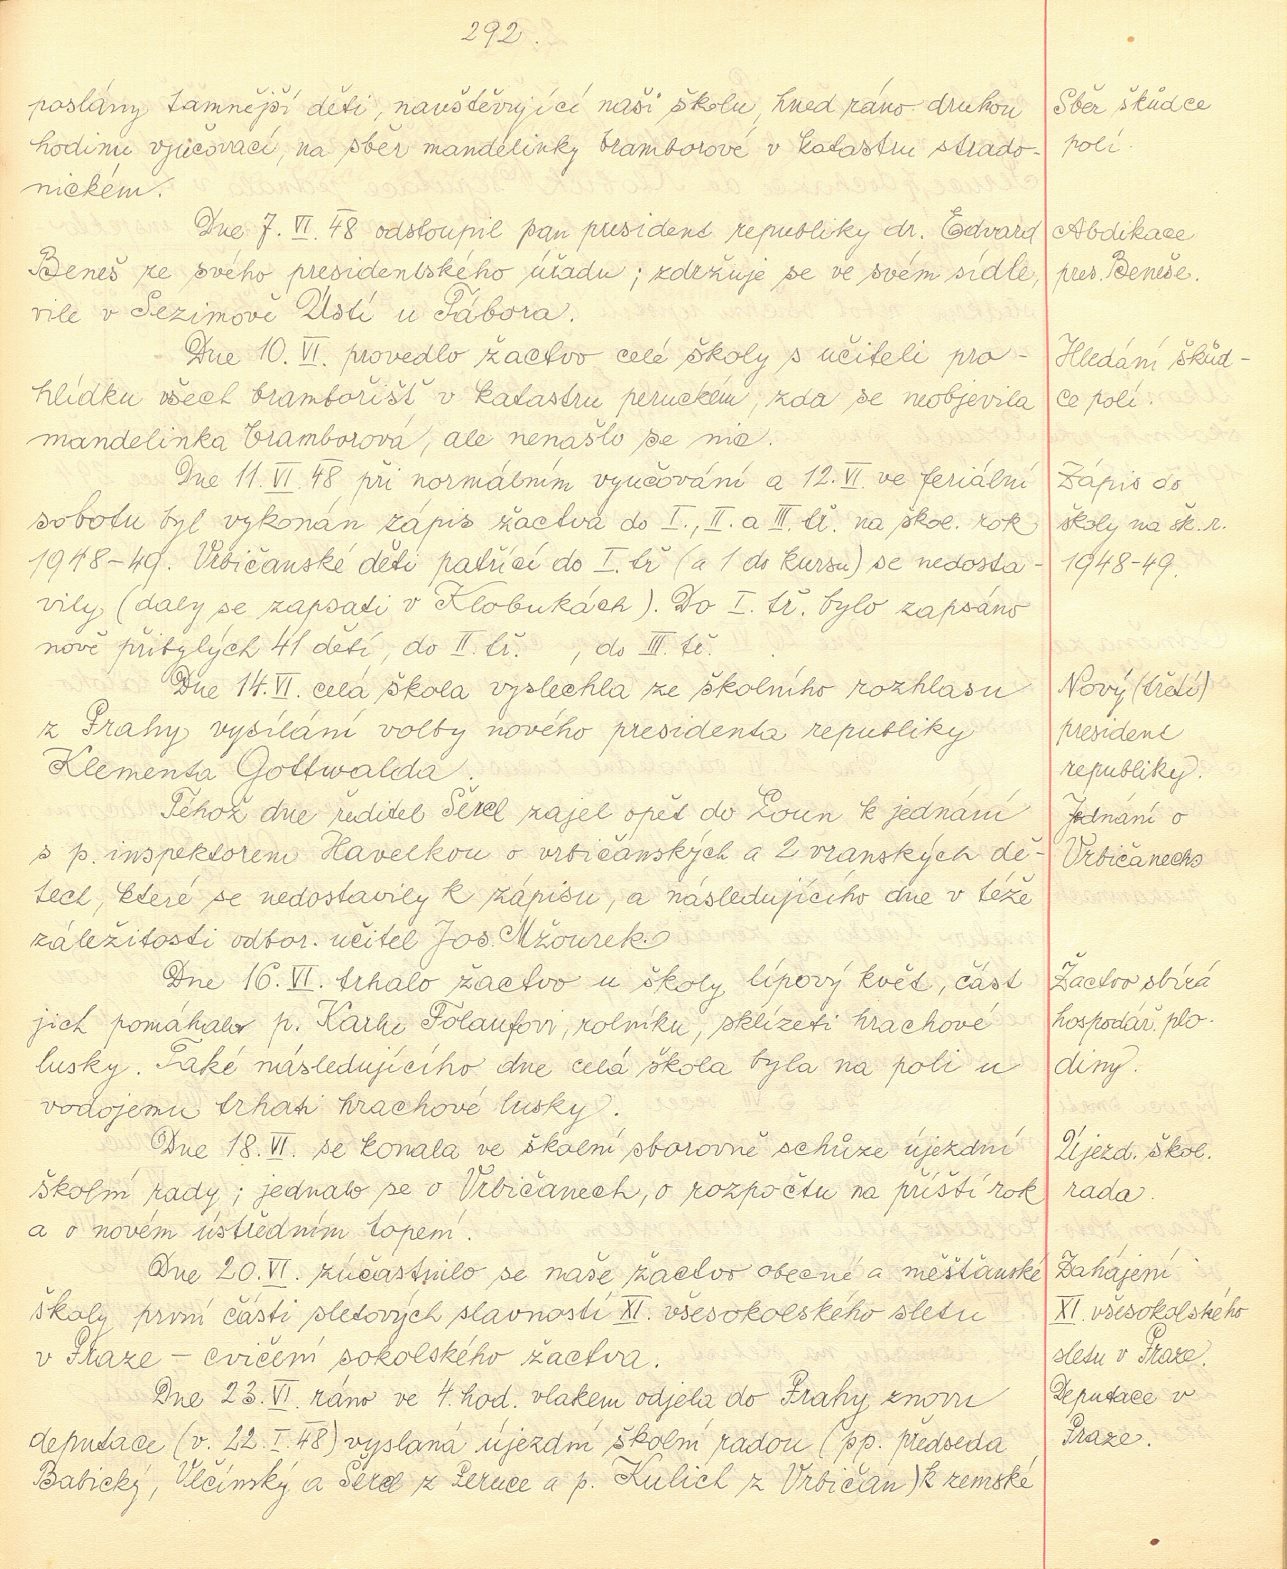 292.
poslány tamnější děti, navštěvující naši školu, hned ráno druhou
hodinu vyučovací, na sběr mandelinky bramborové v katastru strado-
nickém.
Dne 7. VI. 48 odstoupil pan president republiky dr. Edvard
Beneš ze svého presidentského úřadu; zdržuje se ve svém sídle,
vile v Sezimově Ústí u Tábora.
Dne 10. VI. provedlo žactvo celé školy s učiteli pro-
hlídku všech bramborišť v katastru peruckém, zda se neobjevila
mandelinka bramborová, ale nenašlo se nic.
Dne 11. VI. 48 při normálním vyučování a 12. VI. ve feriální
sobotu byl vykonán zápis žactva do I., II. a III. tř. na škol. rok
1948-49. Vrbičanské děti patřící do I. tř (a 1 do kursu) se nedosta-
vily (daly se zapsati v Klobukách). Do I. tř. bylo zapsáno
nově přibylých 41 dětí, do II. tř. , do III. tř. .
Dne 14. VI. celá škola vyslechla ze školního rozhlasu
z Prahy vysílání volby nového presidenta republiky
Klementa Gottwalda.
Téhož dne ředitel Šercl zajel opět do Loun k jednání
s p. inspektorem Havelkou o vrbičanských a 2 vranských dě-
tech, které se nedostavily k zápisu, a následujícího dne v téže
záležitosti odbor. učitel Jos. Mžourek.
Dne 16. VI. trhalo žactvo u školy lípový květ, část
jich pomáhala p. Karlu Folaufovi, rolníku, sklízeti hrachové
lusky. Také následujícího dne celá škola byla na poli u
vodojemu trhati hrachové lusky.
Dne 18. VI. se konala ve školní sborovně schůze újezdní
školní rady; jednalo se o Vrbičanech, o rozpočtu na příští rok
a o novém ústředním topení.
Dne 20. VI. zúčastnilo se naše žactvo obecné a měšťanské
školy první části sletových slavností XI. všesokolského sletu
v Praze – cvičení sokolského žactva.
Dne 23. VI. ráno ve 4. hod. vlakem odjela do Prahy znovu
deputace (v. 22. I. 48) vyslaná újezdní školní radou (pp. předseda
Babický, Vlčínský a Šercl z Peruce a p. Kulich z Vrbičan) k zemské
Sběr škůdce
polí.
Abdikace
pres. Beneše.
Hledání škůd-
ce polí.
Zápis do
školy na šk. r.
1948-49.
Nový (třetí)
president
republiky.
Jednání o
Vrbičanech
Žactvo sbírá
hospodář. plo-
diny.
Újezd. škol.
rada.
Zahájení
XI. všesokolského
sletu v Praze.
Deputace v
Praze.